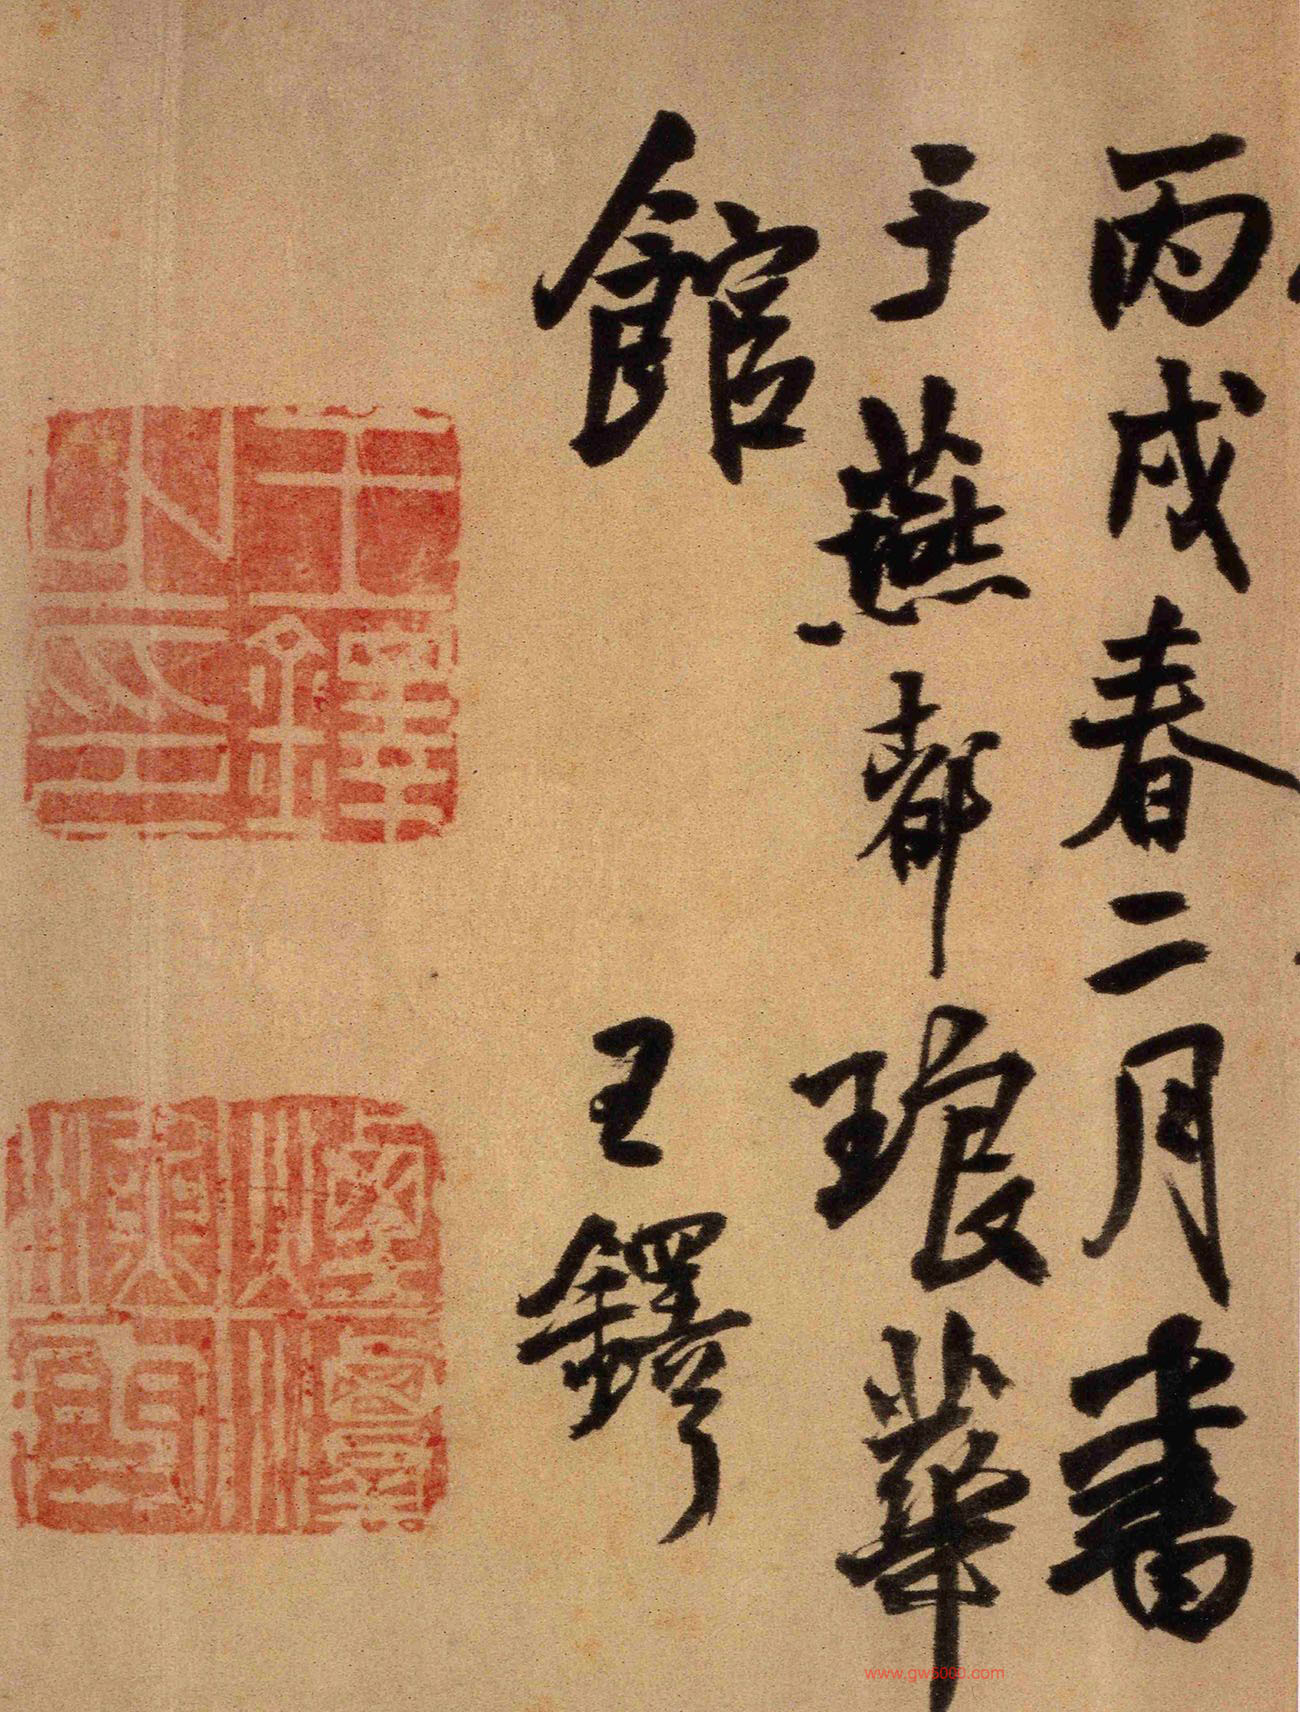 丙戌春二月書
于燕都琅華
館
王鐸
王鐸之印
www.gw5000.com